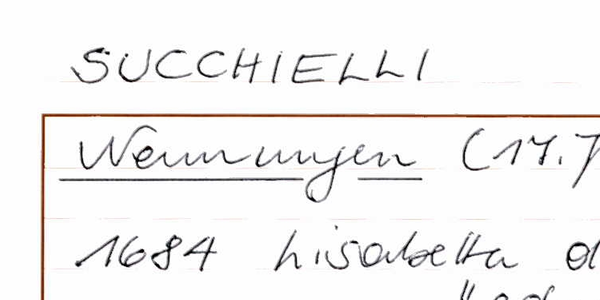 SUCCHIELLI
Nennungen (17.7
1684 Lisabetta d